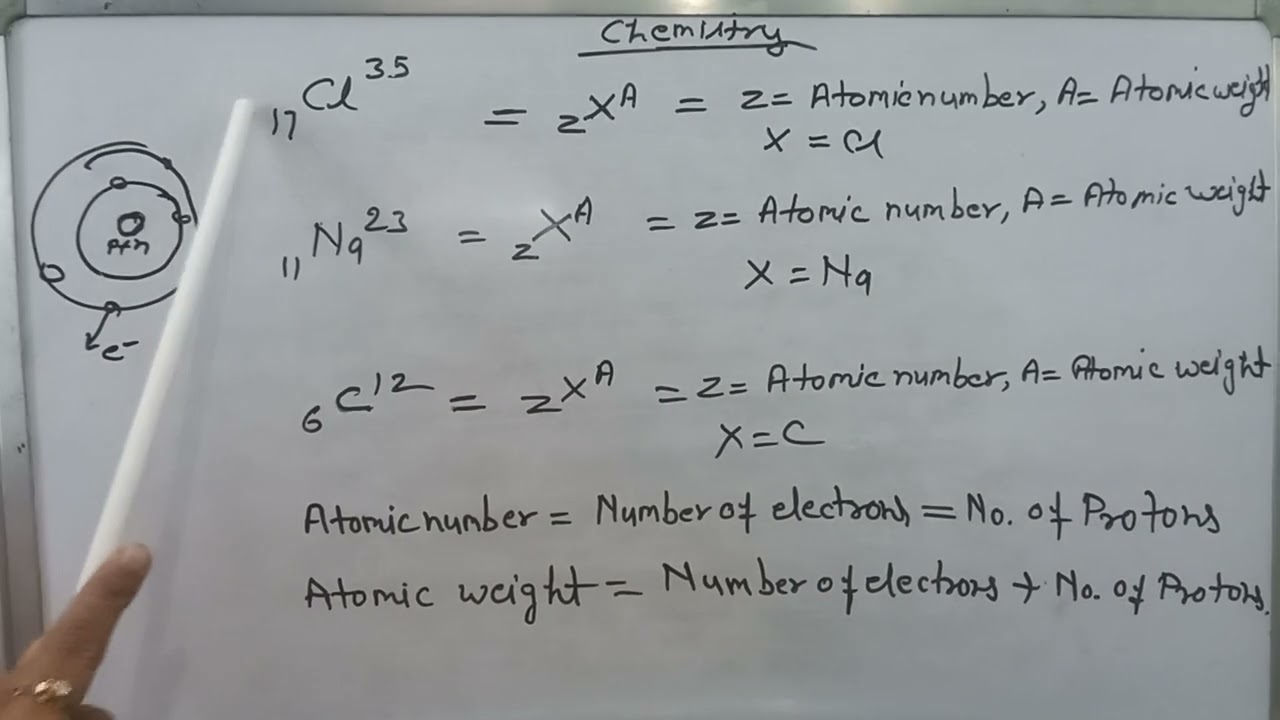 Chemistry
₁₇Cl³⁵ = zXᴬ = z= Atomic number, A= Atomic weight
X = Cl
₁₁Na²³ = zXᴬ = z= Atomic number, A= Atomic weight
X = Na
P+n
e⁻
₆C¹² = zXᴬ = z= Atomic number, A= Atomic weight
X=C
Atomic number = Number of electrons = No. of Protons
Atomic weight = Number of electrons + No. of Protons.